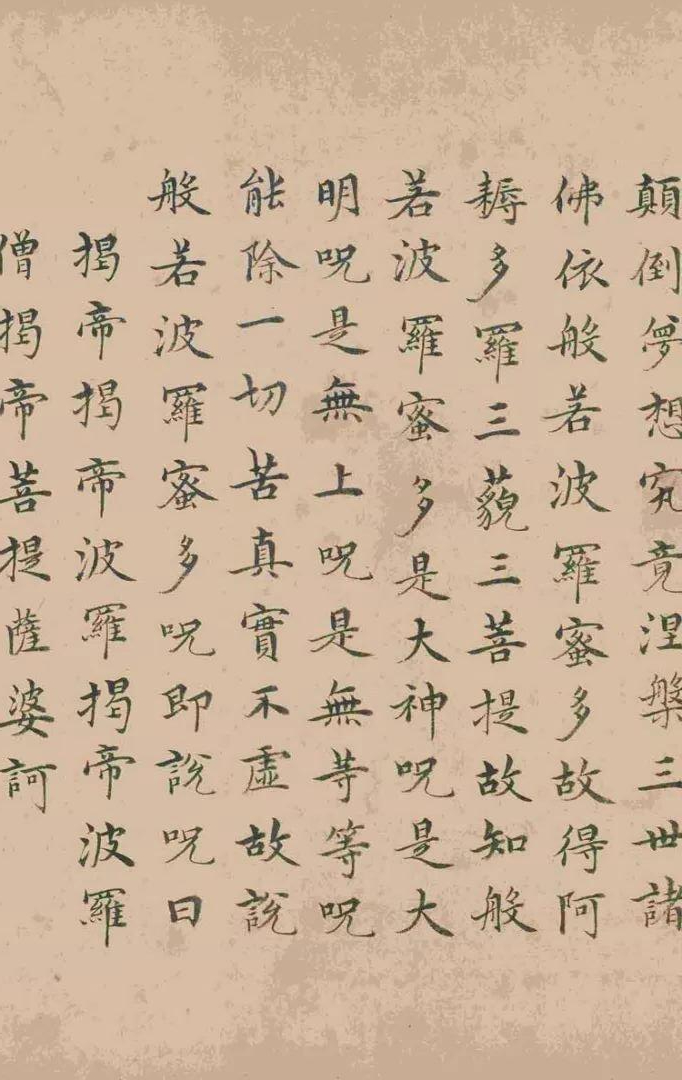 顛倒夢想究竟涅槃三世諸
佛依般若波羅蜜多故得阿
耨多羅三藐三菩提故知般
若波羅蜜多是大神呪是大
明呪是無上呪是無等等呪
能除一切苦真實不虛故說
般若波羅蜜多呪即說呪曰
揭帝揭帝波羅揭帝波羅
僧揭帝菩提薩婆訶